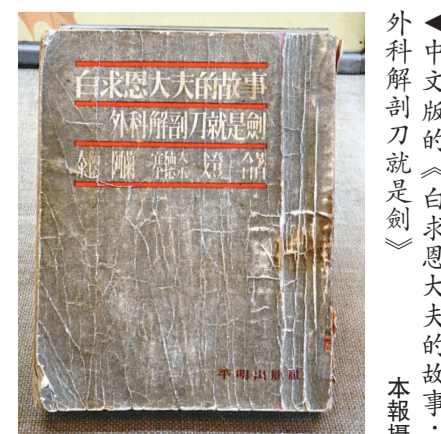 白求恩大夫的故事
外科解剖刀就是劍
泰德·阿蘭 塞德奈·戈登 合著
平明出版社
◀中文版的《白求恩大夫的故事·
外科解剖刀就是劍》
本報攝